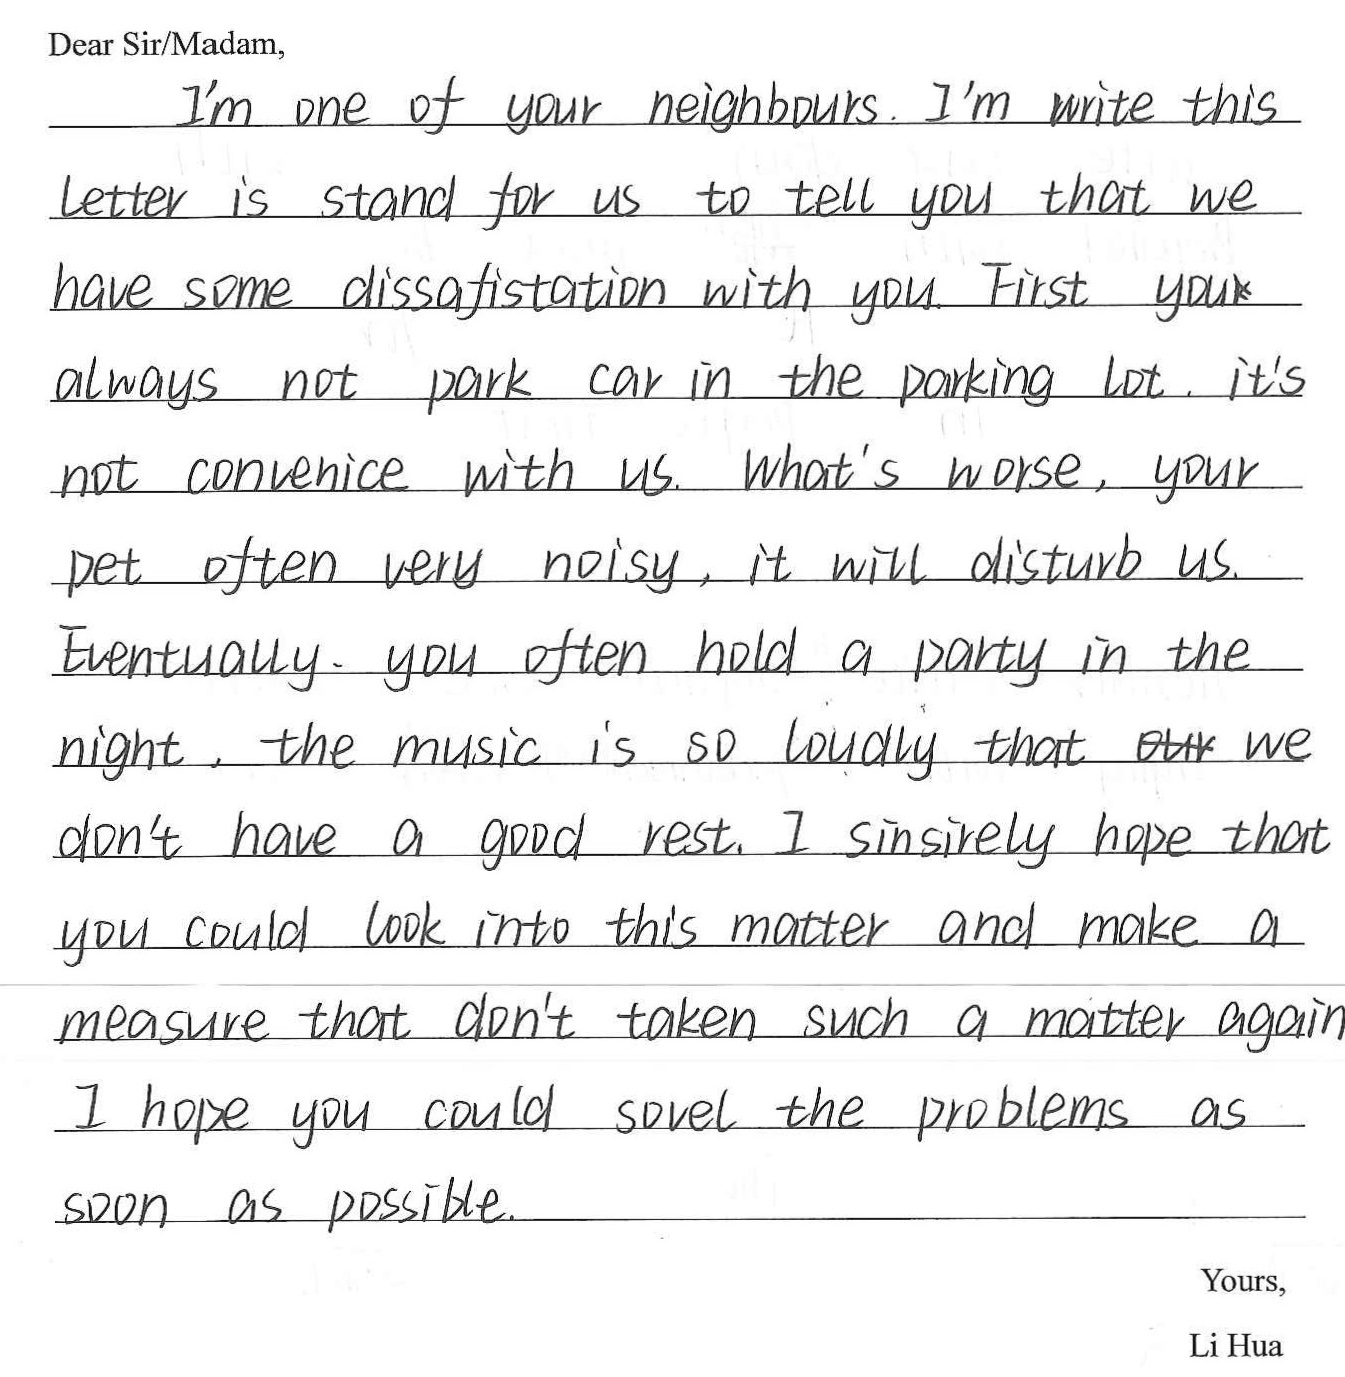 Dear Sir/Madam,
I'm one of your neighbours. I'm write this
letter is stand for us to tell you that we
have some dissafistation with you. First you
always not park car in the parking lot. it's
not convenice with us. What's worse, your
pet often very noisy, it will disturb us.
Eventually. you often hold a party in the
night, the music is so loudly that our we
don't have a good rest. I sinsirely hope that
you could look into this matter and make a
measure that don't taken such a matter again
I hope you could sovel the problems as
soon as possible.
Yours,
Li Hua